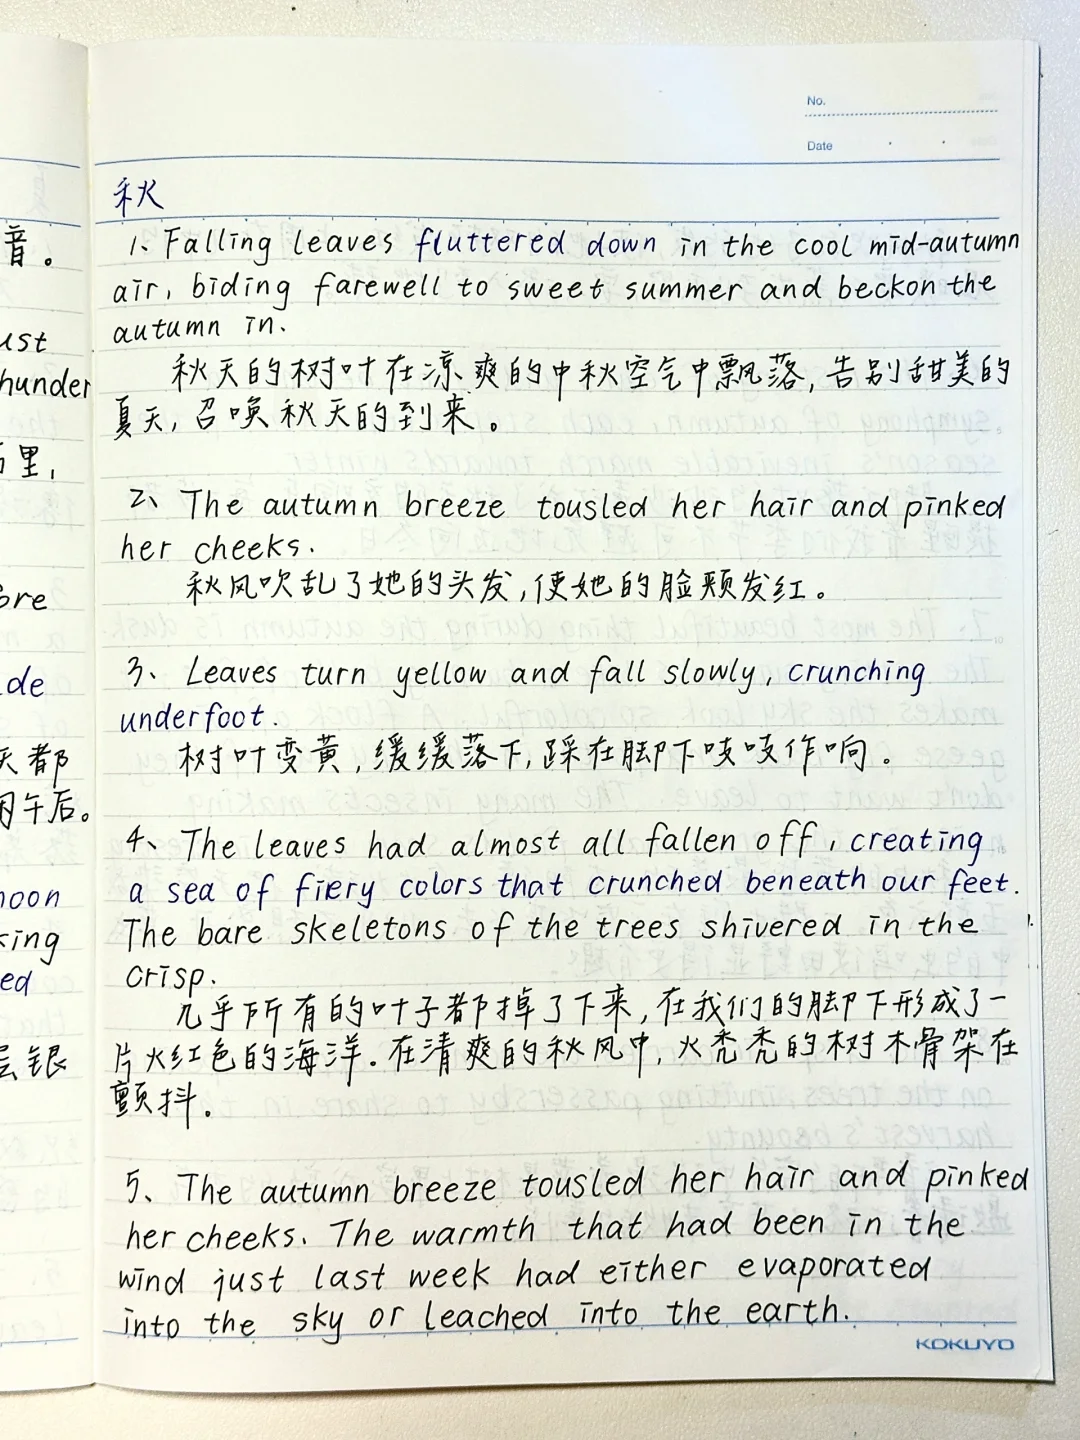 音。
ust
hunder
里，
ore
de
都
午后。
noon
king
ed
银
No.
Date
秋
1、Falling leaves fluttered down in the cool mid-autumn
air, biding farewell to sweet summer and beckon the
autumn in.
秋天的树叶在凉爽的中秋空气中飘落，告别甜美的
夏天，召唤秋天的到来。
2、The autumn breeze tousled her hair and pinked
her cheeks.
秋风吹乱了她的头发，使她的脸颊发红。
3、Leaves turn yellow and fall slowly, crunching
underfoot.
树叶变黄，缓缓落下，踩在脚下吱吱作响。
4、The leaves had almost all fallen off, creating
a sea of fiery colors that crunched beneath our feet.
The bare skeletons of the trees shivered in the
crisp.
几乎所有的叶子都掉了下来，在我们的脚下形成了一
片火红色的海洋.在清爽的秋风中，火秃秃的树木骨架在
颤抖。
5、The autumn breeze tousled her hair and pinked
her cheeks. The warmth that had been in the
wind just last week had either evaporated
into the sky or leached into the earth.
KOKUYO